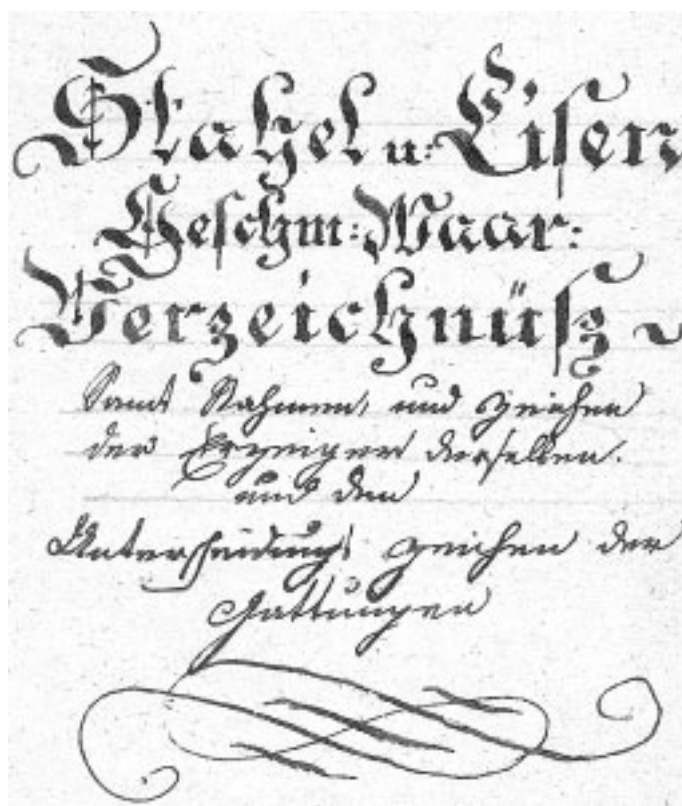 Stahel u: Eisen
Geschm: Waar:
Verzeichnüß
Samt Nahmen, und Zeichen
der Erzeiger derselben.
und dem
Unterscheidungs Zeichen der
Gattungen